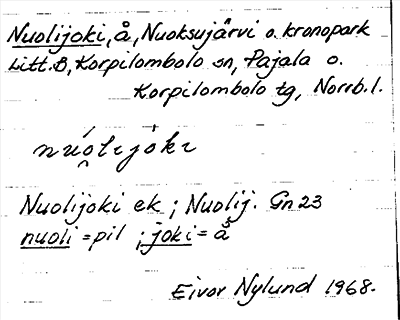 Nuolijoki, å, Nuoksujärvi o. kronopark
Litt. B, Korpilombolo sn, Pajala o.
Korpilombolo tg, Norrb. l.
nu̯ólijóki
Nuolijoki ek; Nuolij. Gn 23
nuoli = pil; joki = å
Eivor Nylund 1968.